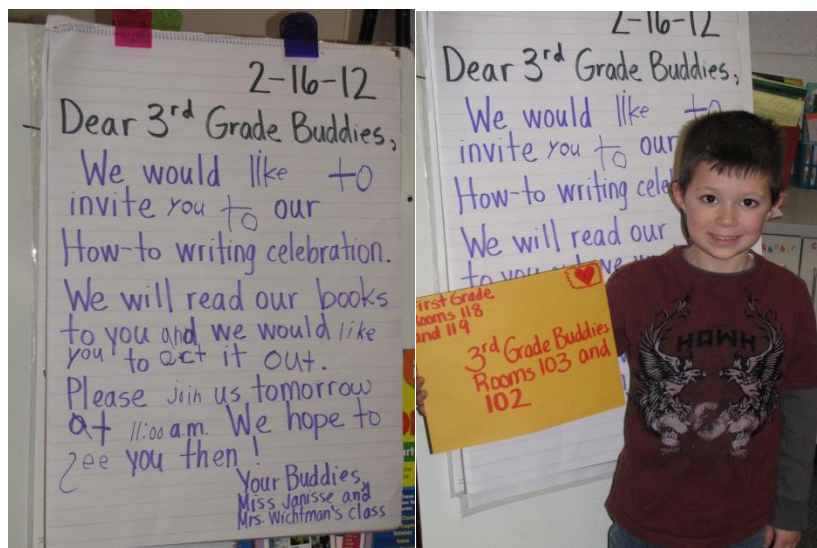 2-16-12
Dear 3rd Grade Buddies,
We would like to
invite you to our
How-to writing celebration.
We will read our books
to you and we would like
you to act it out.
Please join us tomorrow
at 11:00 a.m. We hope to
see you then!
Your Buddies,
Miss Janisse and
Mrs. Wichtman's class
2-16-12
Dear 3rd Grade Buddies,
We would like to
invite you to our
How-to writing cele
We will read our
to you
First Grade
Rooms 118
and 119
3rd Grade Buddies
Rooms 103 and
102
HAWK